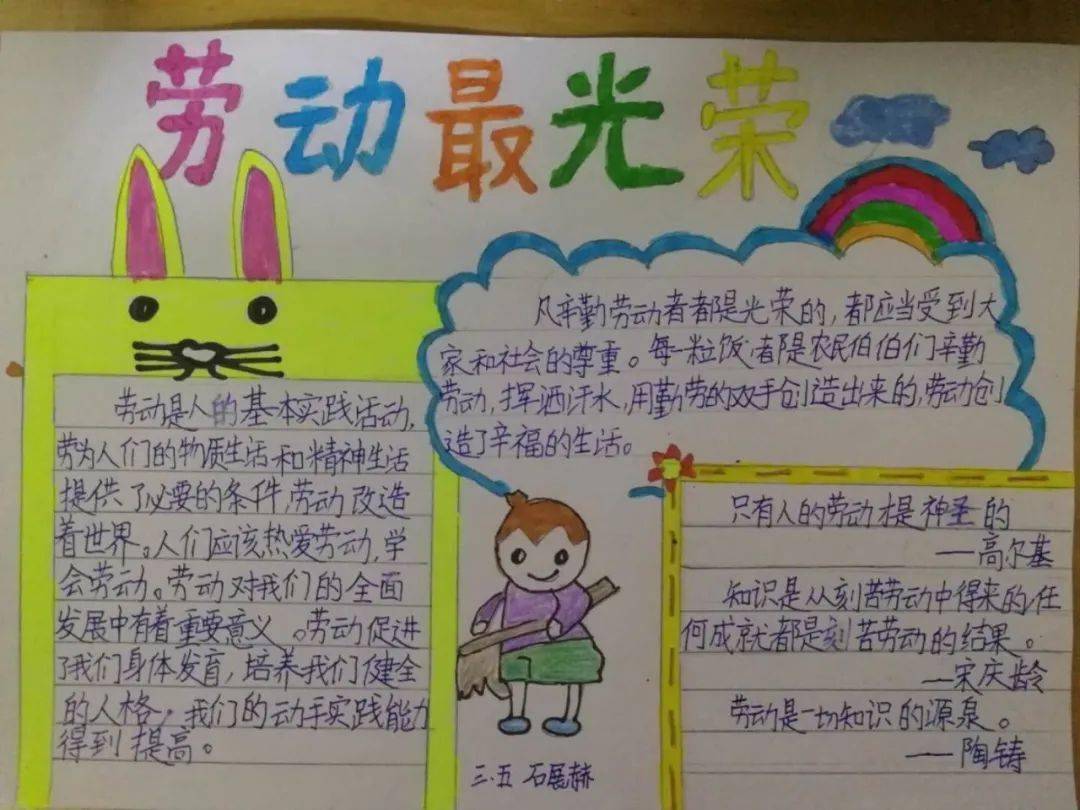 劳动最光荣
劳动是人的基本实践活动,
劳为人们的物质生活和精神生活
提供了必要的条件,劳动改造
着世界。人们应该热爱劳动,学
会劳动。劳动对我们的全面
发展中有着重要意义。劳动促进
了我们身体发育,培养我们健全
的人格,我们的动手实践能力
得到提高。
凡辛勤劳动者都是光荣的,都应当受到大
家和社会的尊重。每一粒饭,都是农民伯伯们辛勤
劳动,挥洒汗水,用勤劳的双手创造出来的,劳动创
造了辛福的生活。
只有人的劳动才是神圣的
—高尔基
知识是从刻苦劳动中得来的,任
何成就都是刻苦劳动的结果。
—宋庆龄
劳动是一切知识的源泉。
——陶铸
三.五 石展赫